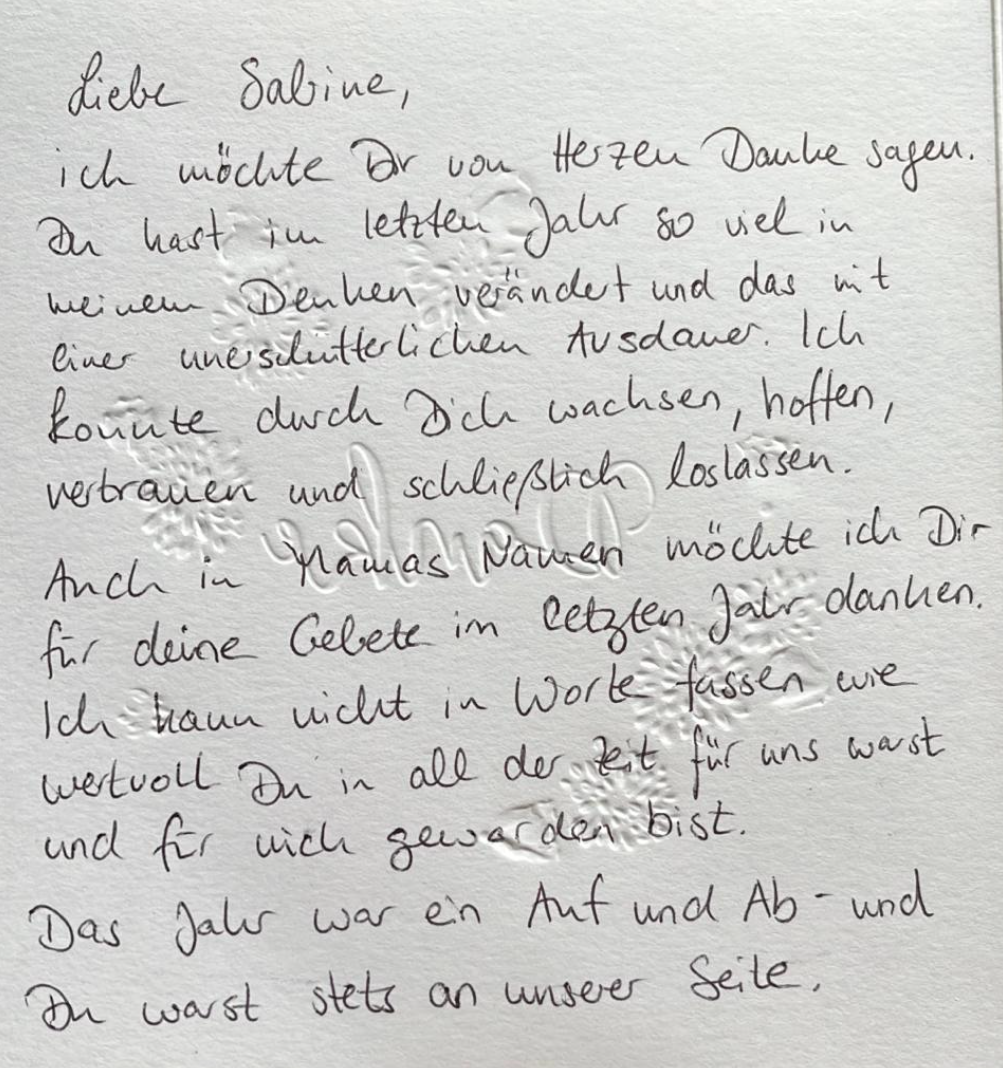 Liebe Sabine,
ich möchte Dir von Herzen Danke sagen.
Du hast im letzten Jahr so viel in
meinem Denken verändert und das mit
einer unerschütterlichen Ausdauer. Ich
konnte durch Dich wachsen, hoffen,
vertrauen und schließlich loslassen.
Danke
Auch in Mamas Namen möchte ich Dir
für deine Gebete im letzten Jahr danken.
Ich kann nicht in Worte fassen wie
wertvoll Du in all der Zeit für uns warst
und für mich geworden bist.
Das Jahr war ein Auf und Ab - und
Du warst stets an unserer Seite.